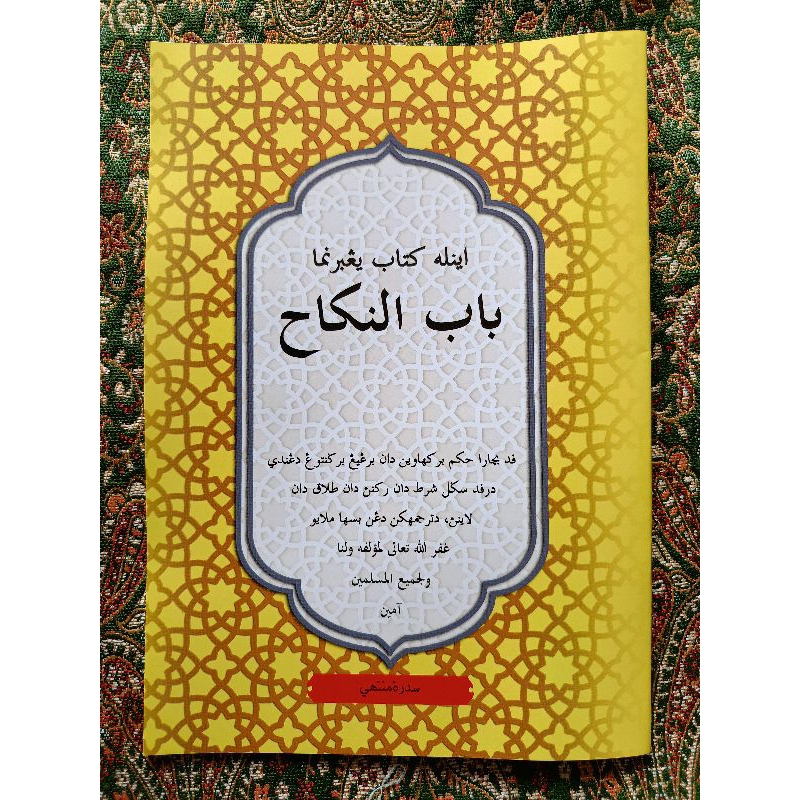 اينله كتاب يڠبرنما
باب النكاح
فد بچارا حكم بركهاوين دان برڠيڠ بركنتوڠ دڠندي
درفد سݢل شرط دان ركنڽ دان طلاق دان
لاينڽ، دترجمهكن دڠن بهسا ملايو
غفر الله تعالى لمؤلفه ولنا
ولجميع المسلمين
آمين
سدرةمنتهي